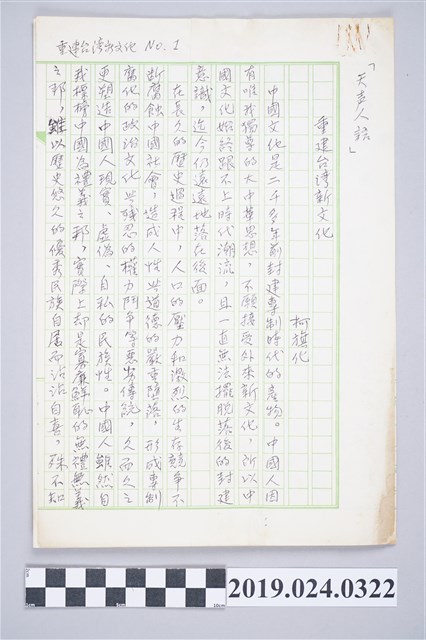 重建台湾新文化 NO. 1
「天主人語」
重建台湾新文化
柯旗化
中國文化是二千多年前封建專制時代的產物。中國人因
有唯我獨尊的大中華思想，不願接受外來新文化，所以中
國文化始終跟不上時代潮流，且一直無法擺脫落後的封建
意識，迄今仍遠遠地落在後面。
在長久的歷史過程中，人口的壓力和激烈的生存競爭不
斷腐蝕中國社會，造成人性与道德的嚴重墮落，形成專制
腐化的政治文化与殘忍的權力鬥爭等惡劣傳統，久而久之
更塑造中國人現實、虛偽、自私的民族性。中國人雖然自
我標榜中國為禮義之邦，實際上却是寡廉鮮恥的無禮無義
之邦，雖以歷史悠久的優秀民族自居而沾沾自喜，殊不知
2cm
5cm
10cm
2019.024.0322